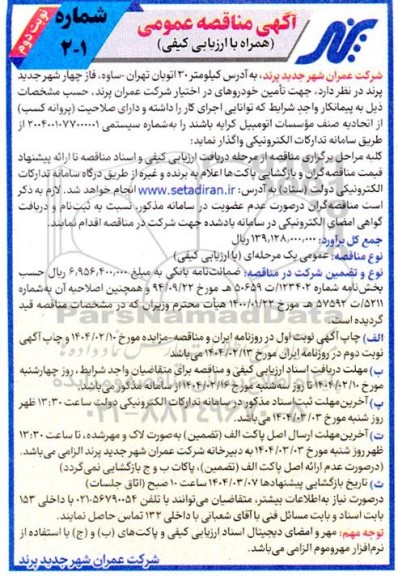 نوبت دوم
شماره
۲-۱
آگهی مناقصه عمومی
(همراه با ارزیابی کیفی)
پرند
شرکت عمران شهر جدید پرند، به آدرس کیلومتر ۳۰ اتوبان تهران -ساوه، فاز چهار شهر جدید
پرند در نظر دارد، جهت تأمین خودروهای در اختیار شرکت عمران پرند، حسب مشخصات
ذیل به پیمانکار واجد شرایط که توانایی اجرای کار را داشته و دارای صلاحیت (پروانه کسب)
از اتحادیه صنف مؤسسات اتومبیل کرایه باشند را به‌شماره سیستمی ۲۰۰۴۰۰۱۰۷۷۰۰۰۰۰۱ از
طریق سامانه تدارکات الکترونیکی واگذار نماید:
کلیه مراحل برگزاری مناقصه از مرحله دریافت ارزیابی کیفی و اسناد مناقصه تا ارائه پیشنهاد
قیمت مناقصه‌گران و بازگشایی پاکت‌ها اعلام به برنده و غیره از طریق درگاه سامانه تدارکات
الکترونیکی دولت (ستاد) به آدرس: www.setadiran.ir انجام خواهد شد. لازم به ذکر
است مناقصه‌گران درصورت عدم عضویت در سامانه مذکور، نسبت به ثبت‌نام و دریافت
گواهی امضای الکترونیکی در سامانه یادشده جهت شرکت در مناقصه اقدام نمایند.
جمع کل برآورد: ۱۳۹,۱۲۸,۰۰۰,۰۰۰ ریال
نوع مناقصه: عمومی یک مرحله‌ای (با ارزیابی کیفی)
نوع و تضمین شرکت در مناقصه: ضمانت‌نامه بانکی به مبلغ ۶,۹۵۶,۴۰۰,۰۰۰ ریال حسب
بخش‌نامه شماره ۱۲۳۴۰۲/ت ۵۰۶۵۹ه مورخ ۹۴/۰۹/۲۲ و همچنین اصلاحیه آن به‌شماره
۵۲۱۱/ت ۵۷۵۹۲ه مورخ ۱۴۰۰/۰۱/۲۲ هیأت محترم وزیران که در مشخصات مناقصه قید
گردیده است.
الف) چاپ آگهی نوبت اول در روزنامه ایران و مناقصه-مزایده مورخ ۱۴۰۴/۰۲/۱۰ و چاپ آگهی
نوبت دوم در روزنامه ایران مورخ ۱۴۰۴/۰۲/۱۳ می‌باشد
ب) مهلت دریافت اسناد ارزیابی کیفی و مناقصه برای متقاضیان واجد شرایط، روز چهارشنبه
مورخ ۱۴۰۴/۰۲/۱۰ تا روز سه‌شنبه مورخ ۱۴۰۴/۰۲/۱۶ از سامانه مذکور می‌باشد.
پ) آخرین مهلت ثبت اسناد مذکور در سامانه تدارکات الکترونیکی دولت ساعت ۱۳:۳۰ ظهر
روز شنبه مورخ ۱۴۰۴/۰۳/۰۳ می‌باشد.
ت) آخرین مهلت ارسال اصل پاکت الف (تضمین) به‌صورت لاک و مهرشده، تا ساعت ۱۳:۳۰
ظهر روز شنبه مورخ ۱۴۰۴/۰۳/۰۳ به دبیرخانه شرکت عمران شهر جدید پرند الزامی می‌باشد.
(درصورت عدم ارائه اصل پاکت الف (تضمین)، پاکات ب و ج بازگشایی نمی‌گردد)
ث) تاریخ بازگشایی پیشنهادها ۱۴۰۴/۰۳/۰۷ ساعت ۱۰ صبح (اتاق جلسات)
درصورت نیاز به‌اطلاعات بیشتر، متقاضیان می‌توانند با تلفن ۵۶۷۹۰۰۵۴-۰۲۱ با داخلی ۱۵۳
بابت اسناد و بابت مسائل فنی با آقای شعبانی با داخلی ۱۳۲ تماس حاصل نمایند.
توجه مهم: مهر و امضای دیجیتال اسناد ارزیابی کیفی و پاکت‌های (ب) و (ج) با استفاده از
نرم‌افزار مهروموم الزامی می‌باشد.
شرکت عمران شهر جدید پرند